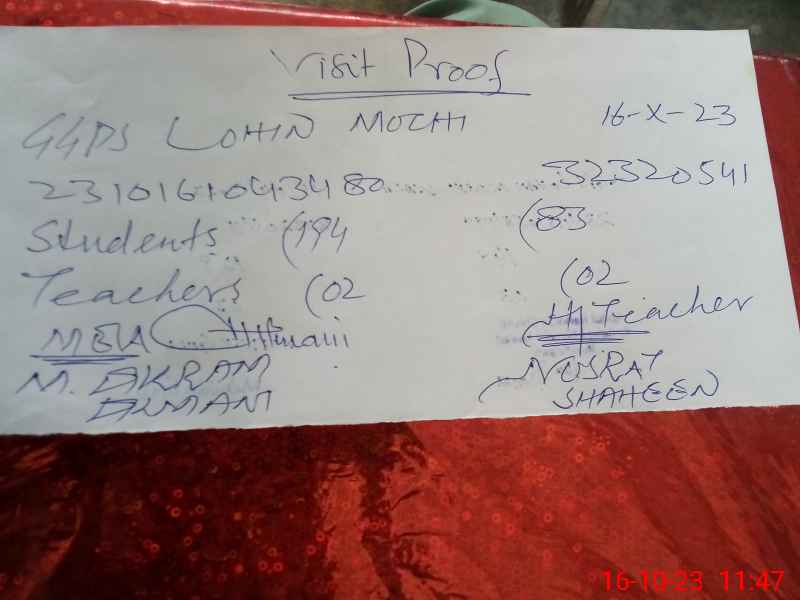 Visit Proof
GGPS LOHIN MOCHI 16-X-23
2310161043480 32320541
Students (194 (83
Teachers (02 (02
MEA H/Teacher
M. IKRAM NUSRAT
SHAHEEN
16-10-23 11:47